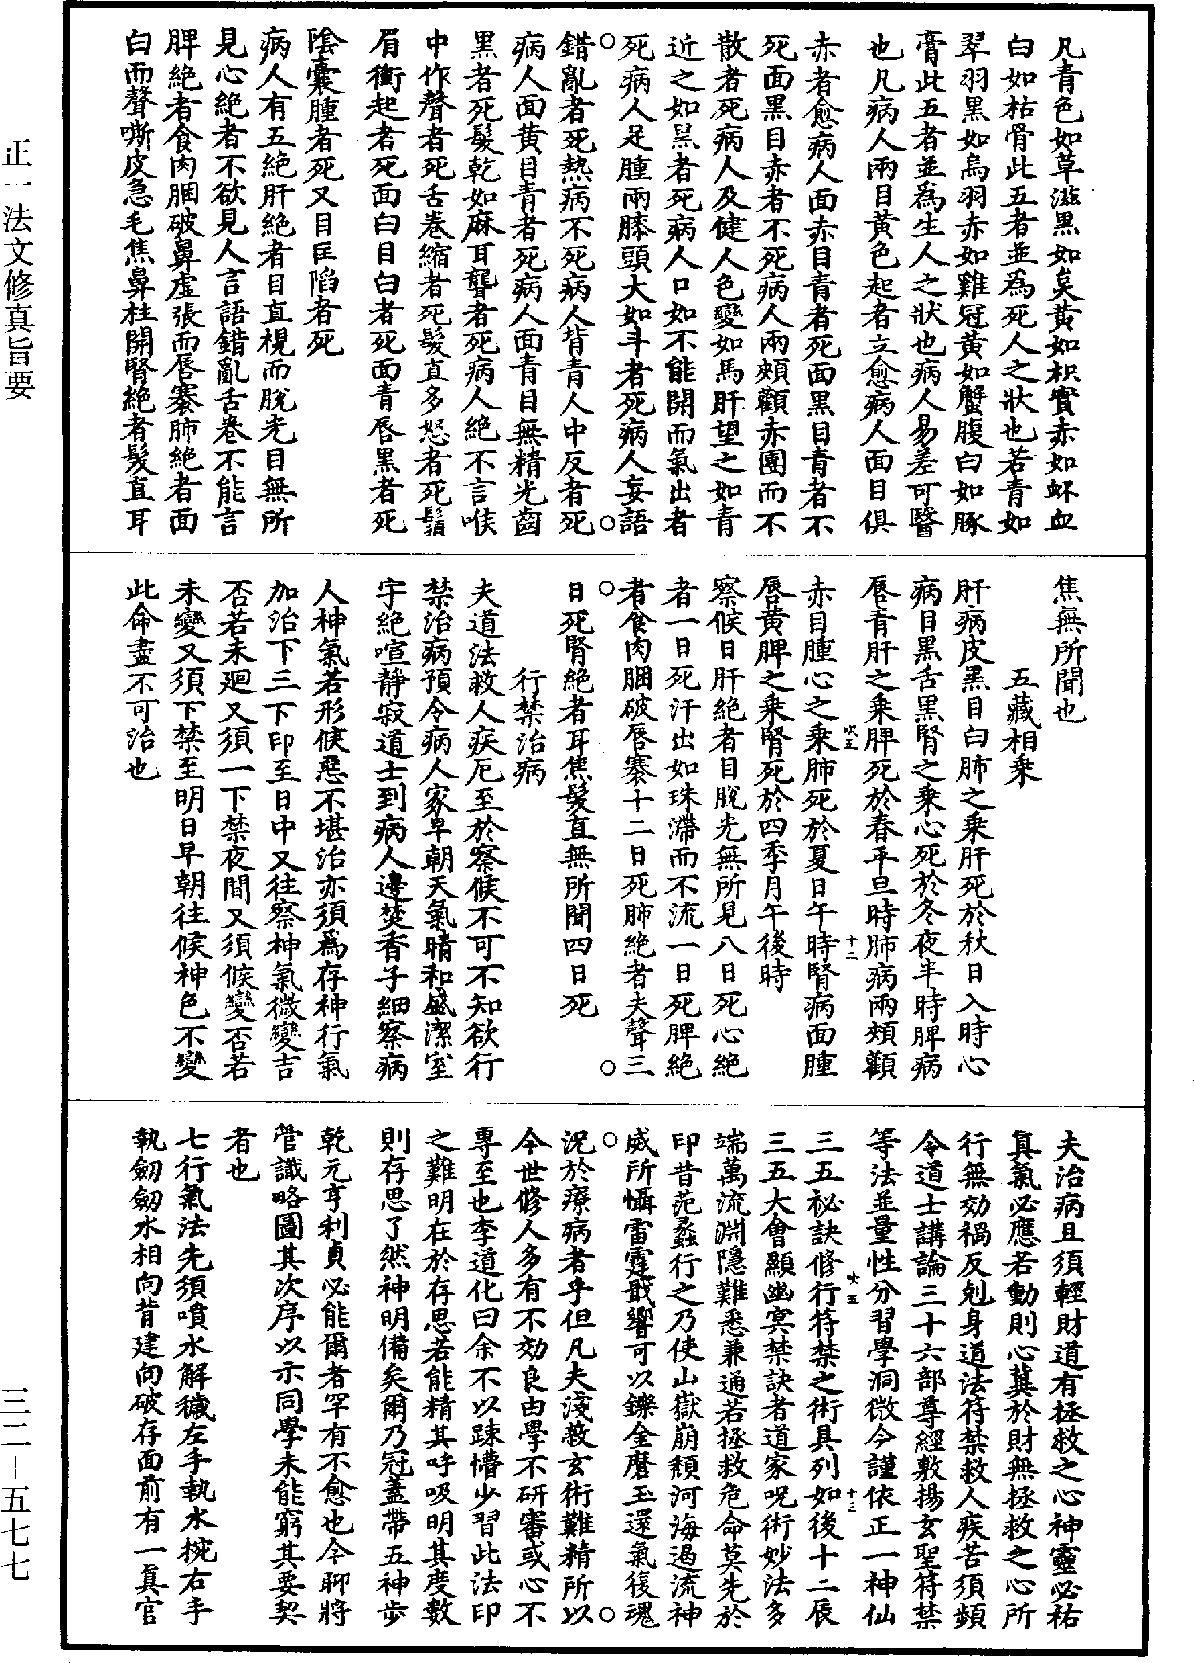 正一法文修真旨要
三二－五七七
凡青色如草滋黑如炱黄如枳實赤如衃血
白如枯骨此五者並為死人之狀也若青如
翠羽黑如烏羽赤如雞冠黄如蟹腹白如豚
膏此五者並為生人之狀也病人易差可醫
也凡病人兩目黄色起者立愈病人面目俱
赤者愈病人面赤目青者死面黑目青者不
死面黑目赤者不死病人兩頰顴赤團而不
散者死病人及健人色變如馬肝望之如青
近之如黑者死病人口如不能開而氣出者
死病人足腫兩膝頭大如斗者死病人妄語
錯亂者死熱病不死病人背青人中反者死
病人面黄目青者死病人面青目無精光齒
黑者死髮乾如麻耳聾者死病人絶不言喉
中作聲者死舌卷縮者死髮直多怒者死鬚
眉衝起者死面白目白者死面青唇黑者死
陰囊腫者死又目匡陷者死
病人有五絶肝絶者目直視而脫光目無所
見心絶者不欲見人言語錯亂舌卷不能言
脾絶者食肉䐃破鼻虚張而唇褰肺絶者面
白而聲嘶皮急毛焦鼻柱開腎絶者髮直耳
焦無所聞也
五藏相乘
肝病皮黑目白肺之乘肝死於秋日入時心
病目黑舌黑腎之乘心死於冬夜半時脾病
唇青肝之乘脾死於春平旦時肺病兩頰顴
赤目腫心之乘肺死於夏日午時腎病面腫
唇黄脾之乘腎死於四季月午後時
察候日肝絶者目脫光無所見八日死心絶
者一日死汗出如珠滯而不流一日死脾絶
者食肉䐃破唇褰十二日死肺絶者夫聲三
日死腎絶者耳焦髮直無所聞四日死
行禁治病
夫道法救人疾厄至於察候不可不知欲行
禁治病預令病人家早朝天氣晴和盛潔室
宇絶喧静寂道士到病人邊焚香子細察病
人神氣若形候惡不堪治亦須為存神行氣
加治下三下印至日中又往察神氣微變吉
否若未廻又須一下禁夜間又須候變否若
未變又須下禁至明日早朝往候神色不變
此命盡不可治也
夫治病且須輕財道有拯救之心神靈必祐
真氣必應若動則心冀於財無拯救之心所
行無効禍反剋身道法符禁救人疾苦須頻
令道士講論三十六部尊經敷揚玄聖符禁
等法並量性分習學洞微今謹依正一神仙
三五祕訣修行符禁之術具列如後十二辰
三五大會顯幽冥禁訣者道家呪術妙法多
端萬流淵隱難悉兼通若拯救危命莫先於
印昔范蠡行之乃使山嶽崩頹河海遏流神
威所懾雷霆戢響可以鑠金磨玉還氣復魂
況於療病者乎但凡夫淺教玄術難精所以
今世修人多有不効良由學不研審或心不
專至也李道化曰余不以踈懵少習此法印
之難明在於存思若能精其呼吸明其度數
則存思了然神明備矣爾乃冠蓋帶五神步
乾元亨利貞必能爾者罕有不愈也今聊將
管識略圖其次序以示同學未能窮其要契
者也
七行氣法先須噴水解穢左手執水椀右手
執劒劒水相向背建向破存面前有一真官